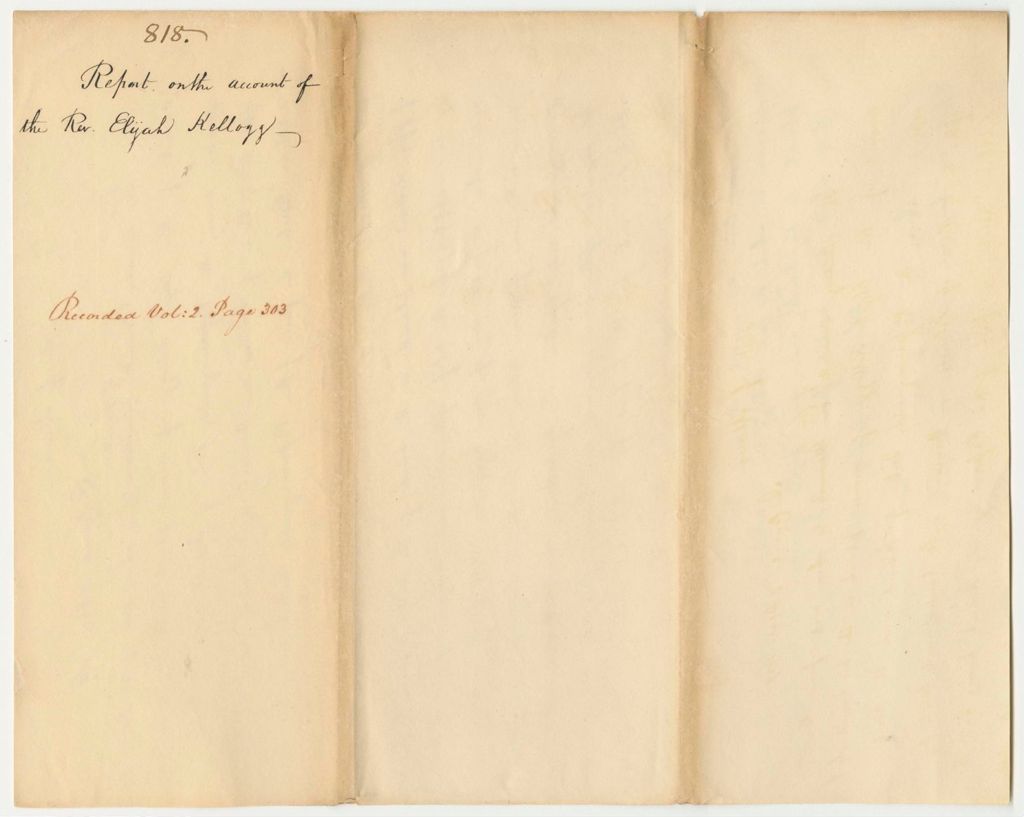 818.
Report on the account of
the Rev. Elijah Kellogg
Recorded Vol: 2. Page 303